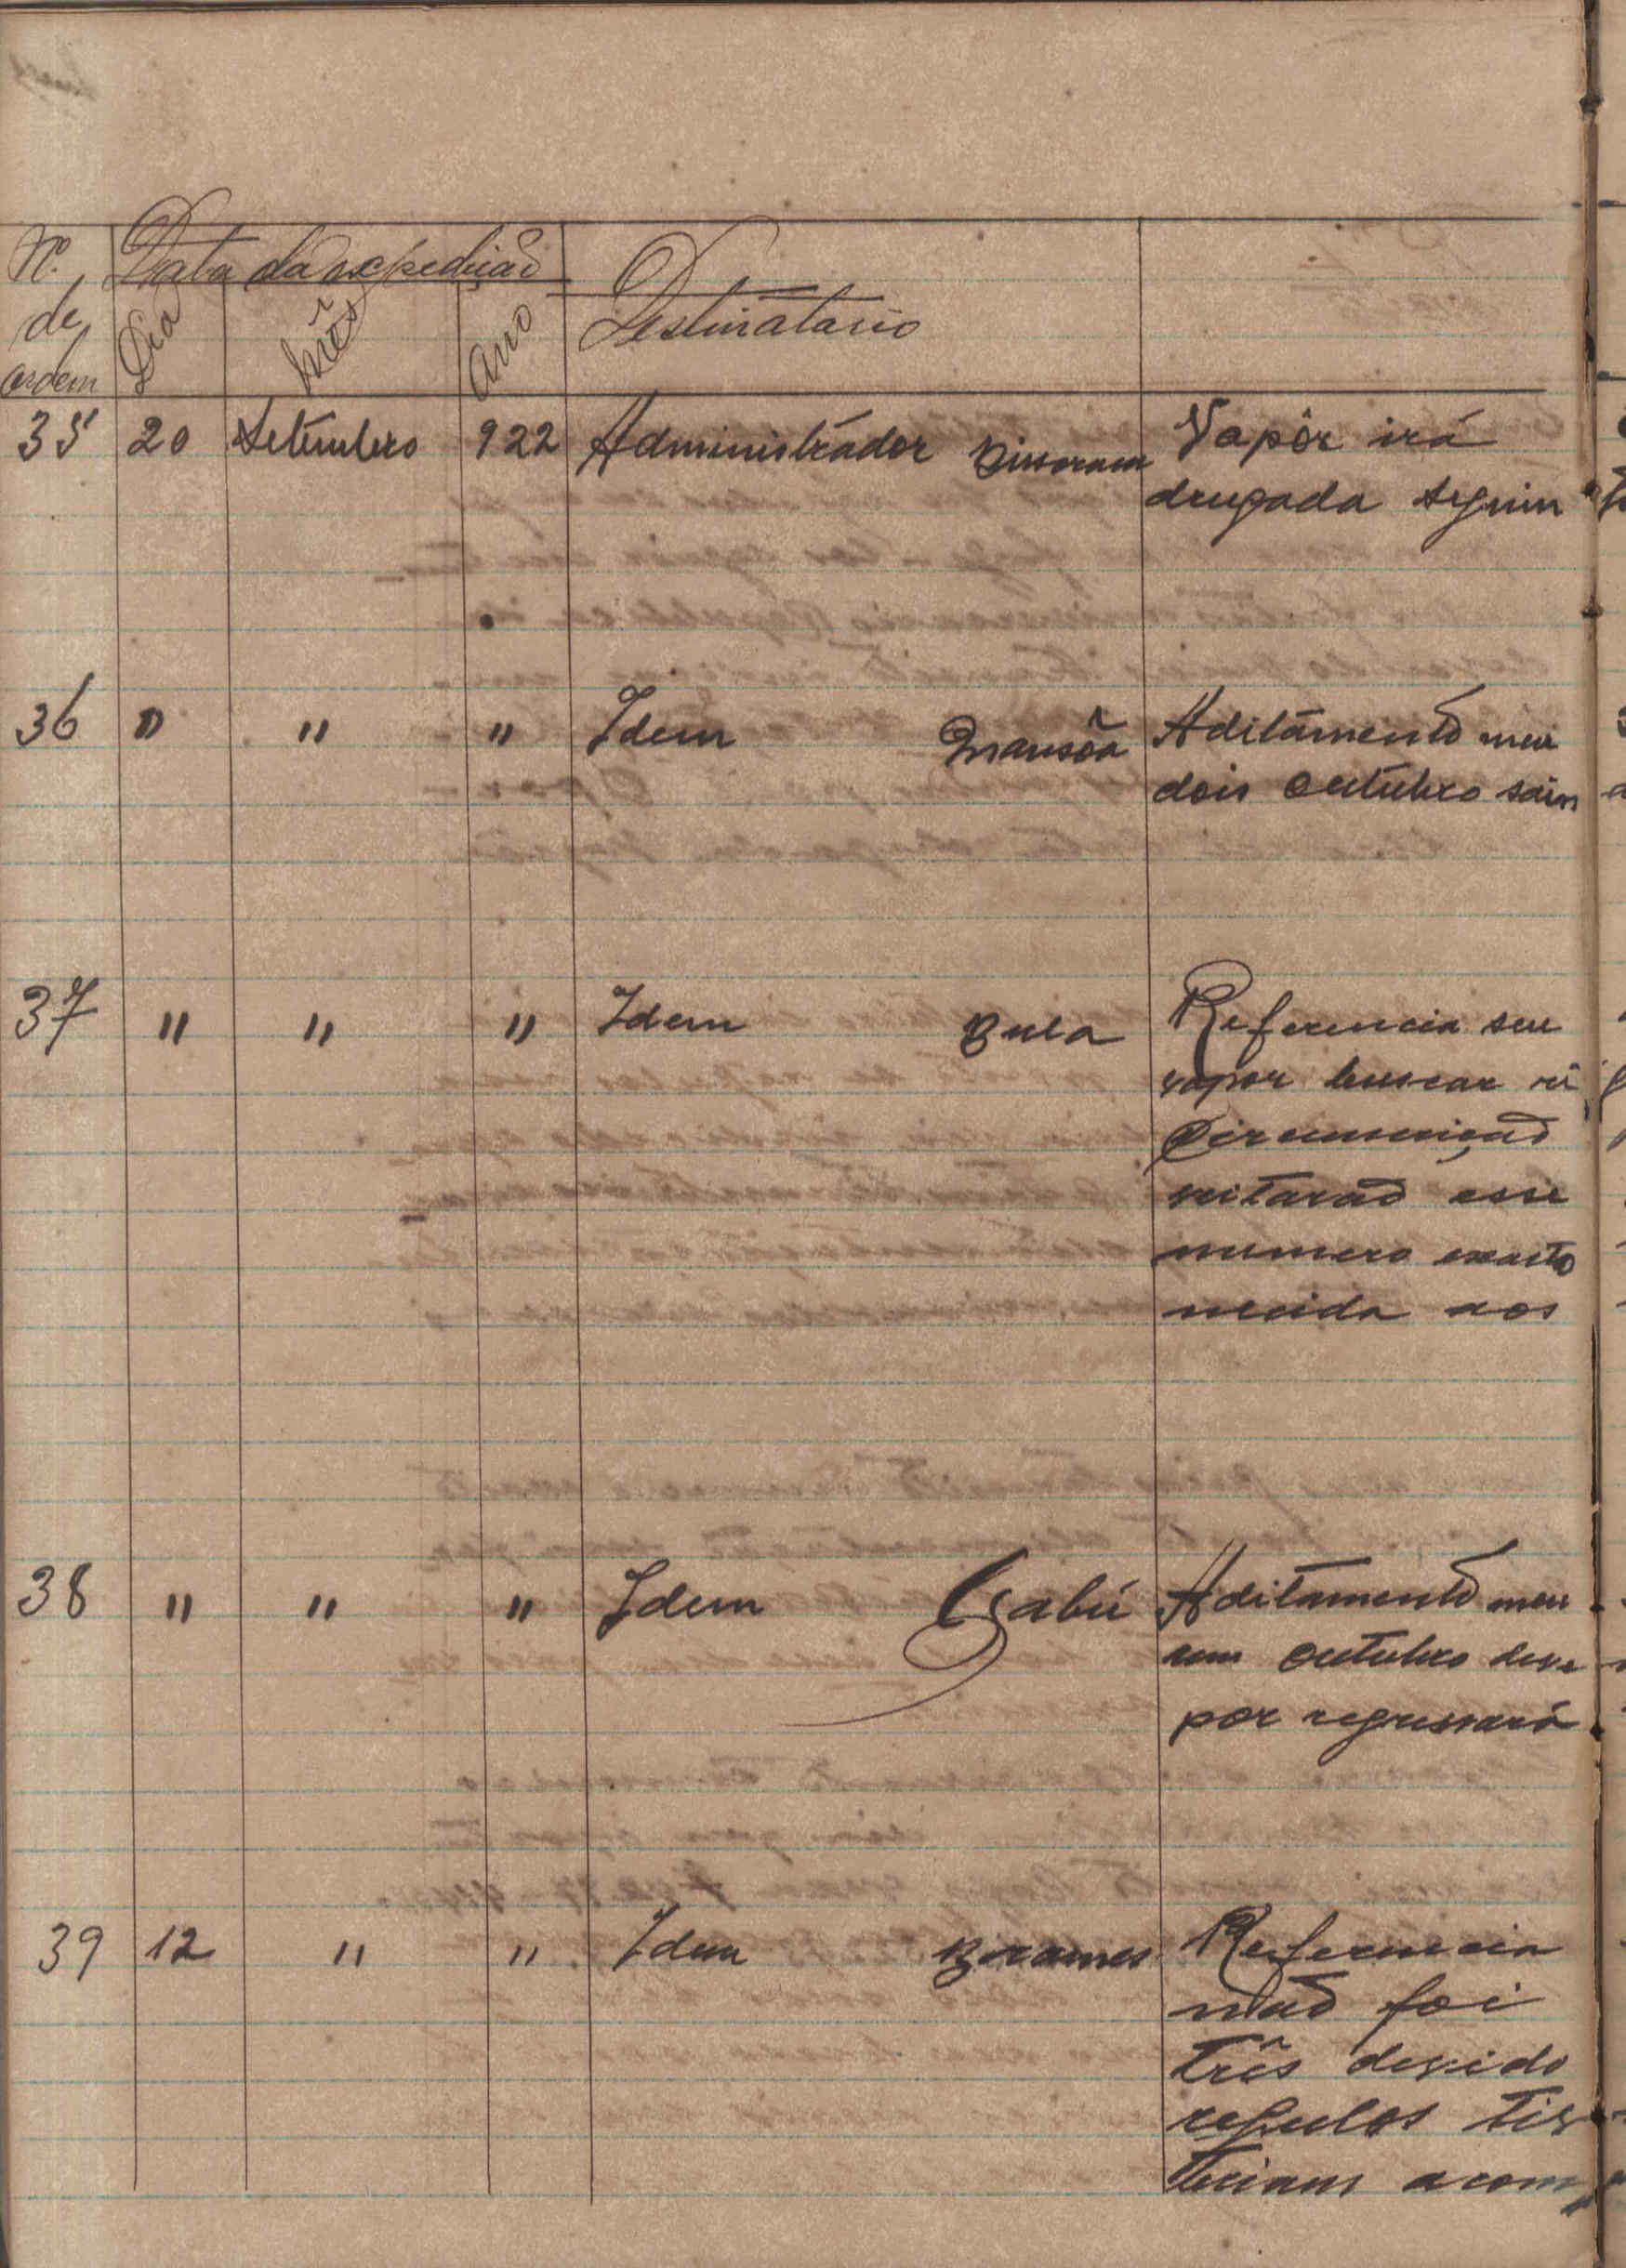 Nº de ordem Data da expedição Destinatario
Dia Mês Ano
35 20 Setembro 922 Administrador Bissoram Vapôr irá
drugada seguin
36 " " " Idem Mansôa Aditamento meu
dois Outubro sain
37 " " " Idem Bula Referencia seu
vapor buscar ré
Circumscrição
veitarão esse
numero exacto
necida aos
38 " " " Idem Gabú Aditamento meu
um Outubro deve
por regressará
39 12 " " Idem Brames Referencia
não foi
três devido
regulos tiv
teriam acom